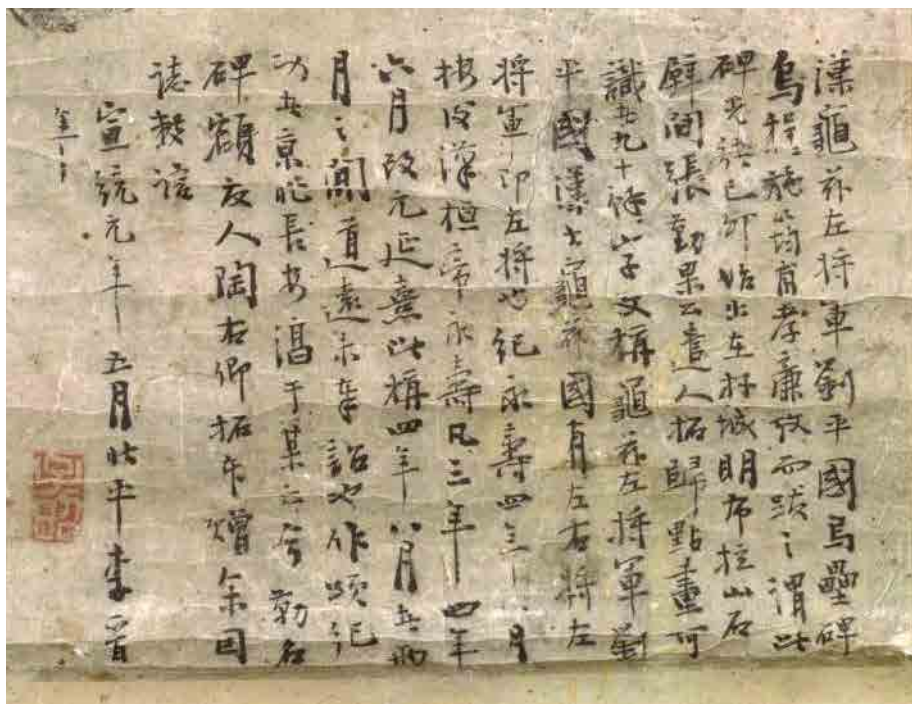 漢龜茲左將軍劉平國烏壘碑
烏程施筠甫孝廉攷而跋之謂此
碑光緒己卯始出在拜城明布拉山石
壁間張勤果公遣人拓歸點畫可
識者九十餘字文稱龜茲左將軍劉
平國漢書龜茲國有左右將左
將軍即左將也紀永壽四年八月
按後漢桓帝永壽凡三年四年
六月改元延熹此稱四年八月者兩
月之間道遠未奉詔也作頌紀
功者京兆長安淳于某云云勒名
碑額友人陶右卿拓本贈余因
誌數語
宣統元年五月北平李晉
年